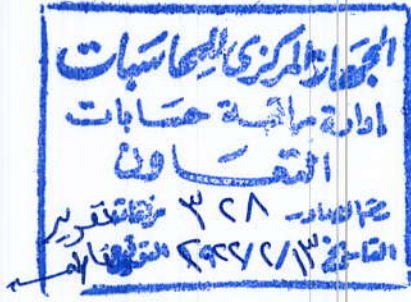 الجهاز المركزى للمحاسبات
إدارة مراقبة حسابات
التعاون
رقم الصادر ٣٢٨ مرفقات تقرير
التاريخ ٢٠٢٢/٢/١٣ التوقيع